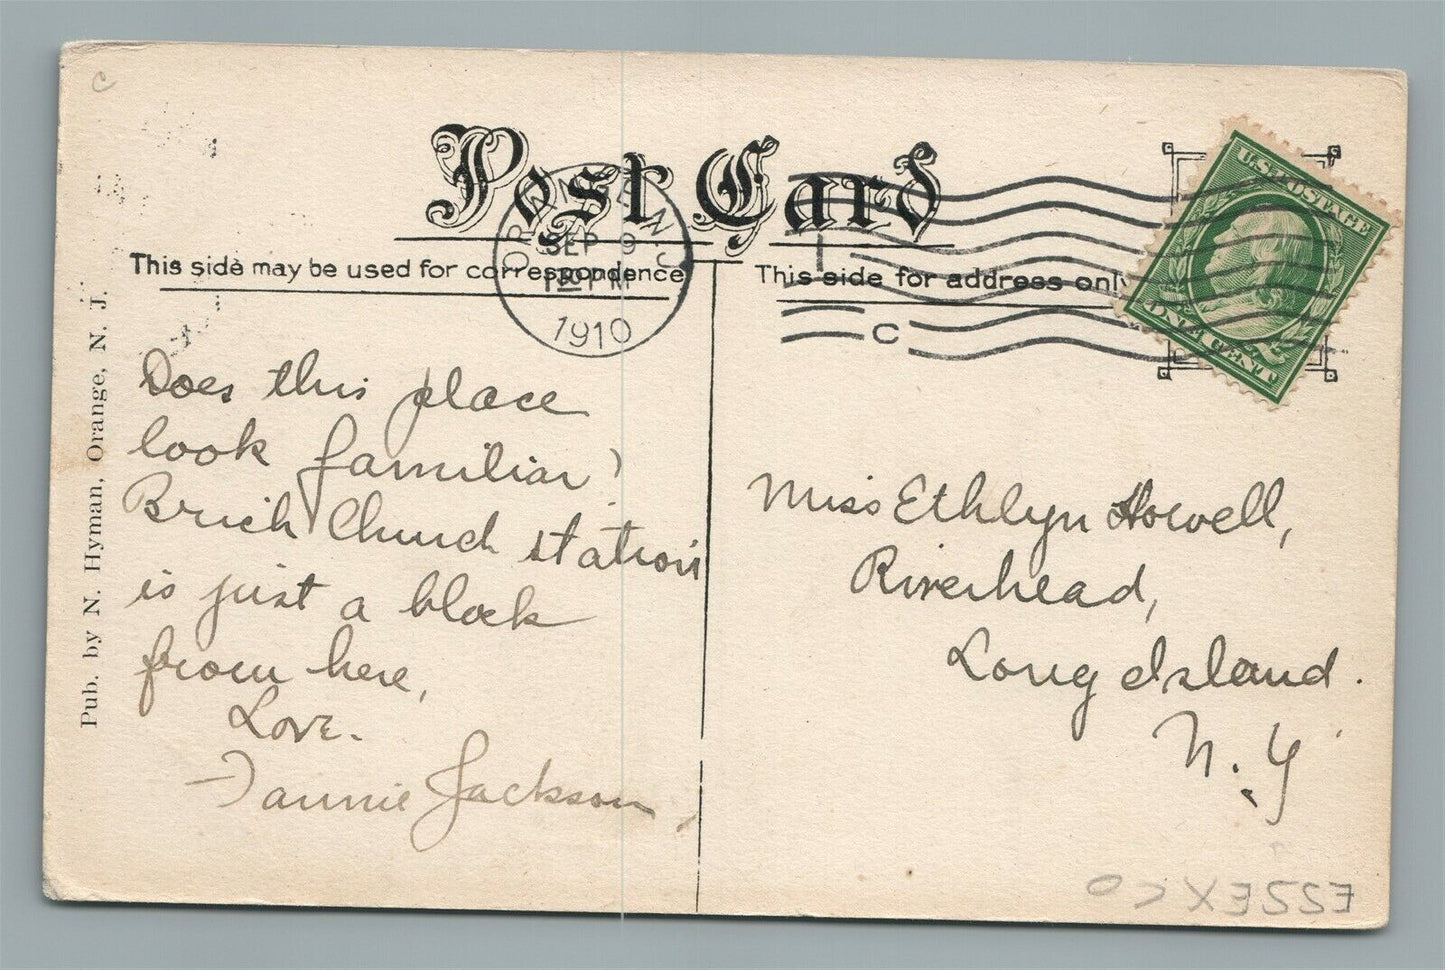 C
Post Card
ORANGE N J
SEP 9
PM
1910
C
U.S. POSTAGE
ONE CENT
This side may be used for correspondence
This side for address only
Pub. by N. Hyman, Orange, N. J.
Does this place
look familiar?
Brick Church station
is just a block
from here,
Love.
Fannie Jackson,
Miss Ethlyn Howell,
Riverhead,
Long Island.
N. Y.
ESSEX CO